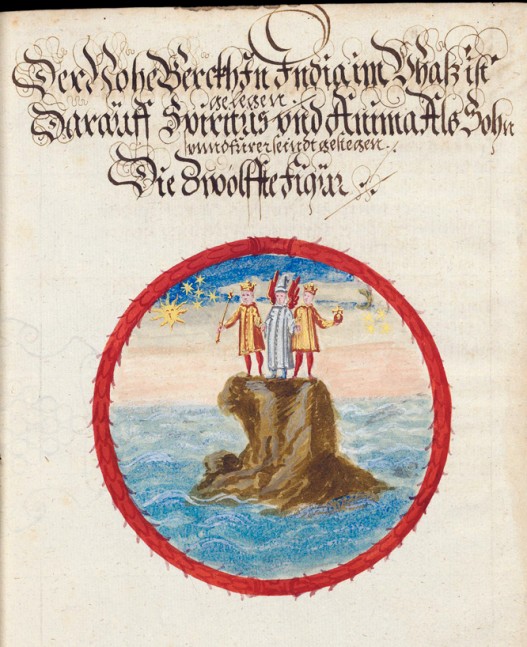 Der Hohe Berckh In Indig im Vhaß ist
gelegen.
Darauff Spiritus vnd Anima Als Sohn
vnnd fürer seindt gestiegen.
Die Zwölffte Figur